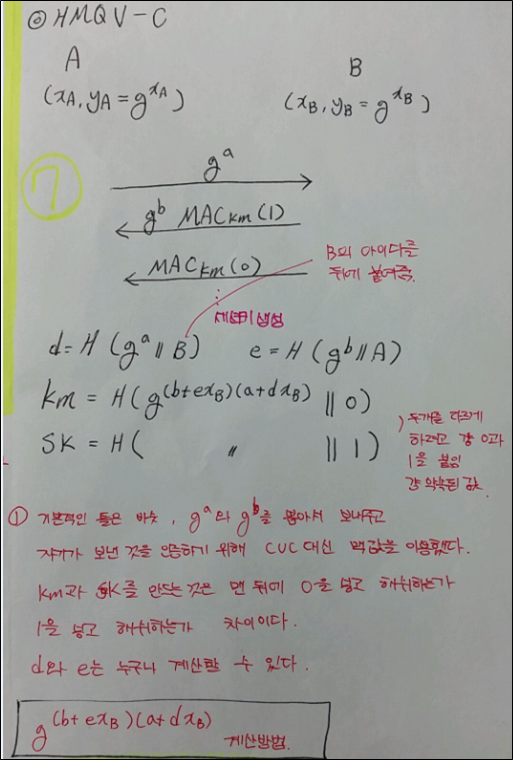 ◎ HMQV-C
A
B
(xA, yA = g^xA)
(xB, yB = g^xB)
⑦
g^a
g^b MACkm(1)
MACkm(0)
B의 아이디를
뒤에 붙여줌.
세션키생성
d = H (g^a || B) e = H (g^b || A)
km = H(g^(b+exB)(a+dxB) || 0)
SK = H( 〃 || 1)
두개를 다르게
하려고 걍 0과
1을 붙임
걍 약속된 값.
① 기본적인 틀은 비슷, g^a와 g^b를 뽑아서 보내주고
자기가 보낸 것을 인증하기 위해 CVC 대신 맥값을 이용했다.
km과 SK를 만드는 것은 맨 뒤에 0을 넣고 해쉬하는가
1을 넣고 해쉬하는가 차이이다.
d와 e는 누구나 계산할 수 있다.
g^(b+exB)(a+dxB) 계산방법.